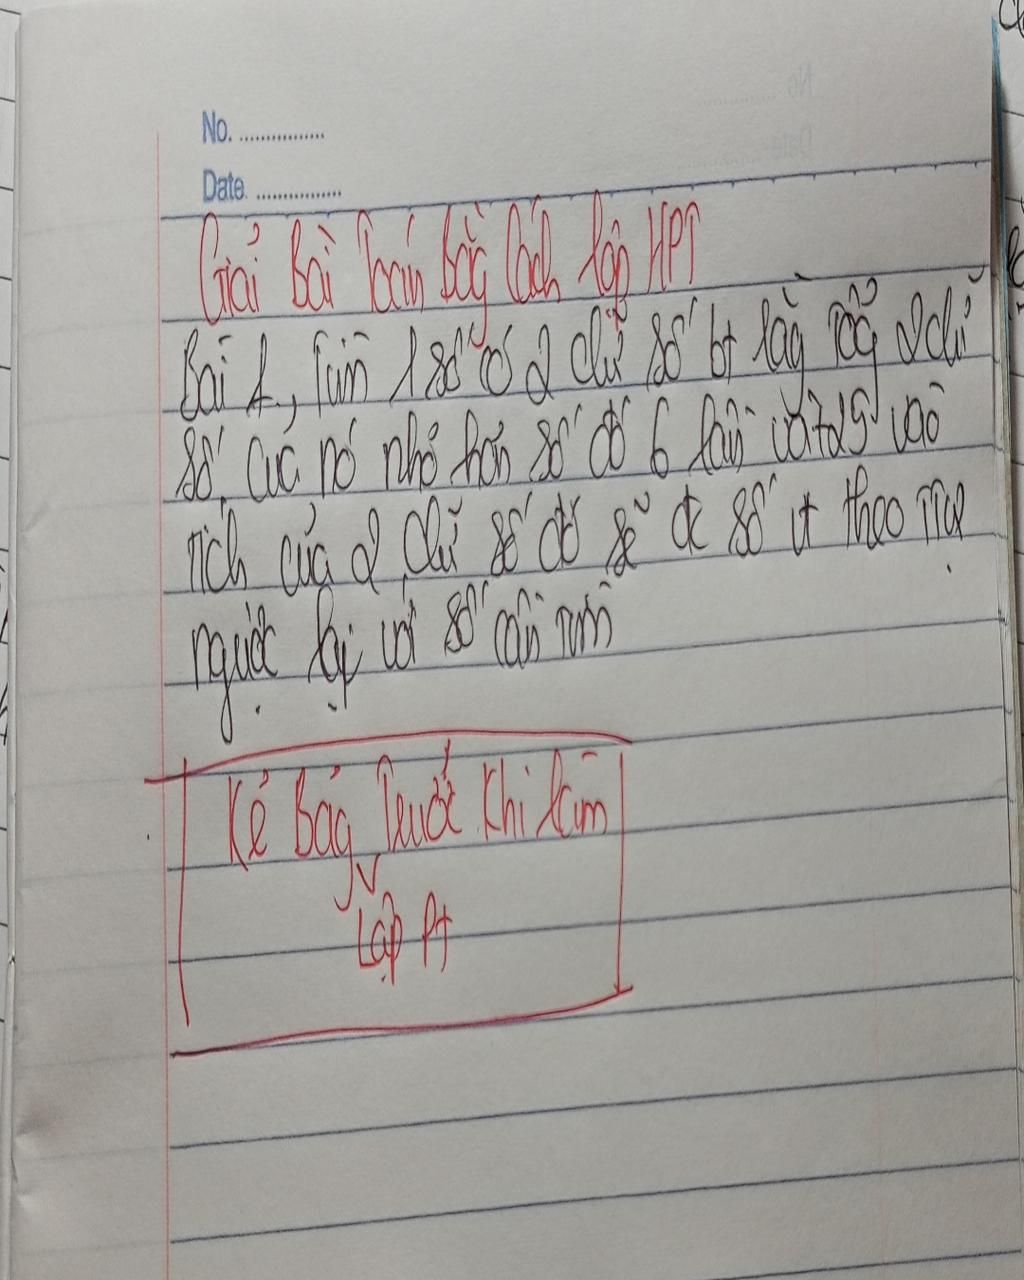 No. ...............
Date ...............
Giải Bài Toán bằg Cách lập HPT
Bài 1, Tìm 1 số có 2 chữ số bt rằg tổg 2 chữ
số của nó nhỏ hơn số đó 6 lần và +25 vào
tích của 2 chữ số đó sẽ đc số vt theo
ngược lại với số cần tìm
Kẻ Bảg Trước Khi làm
Lập Pt